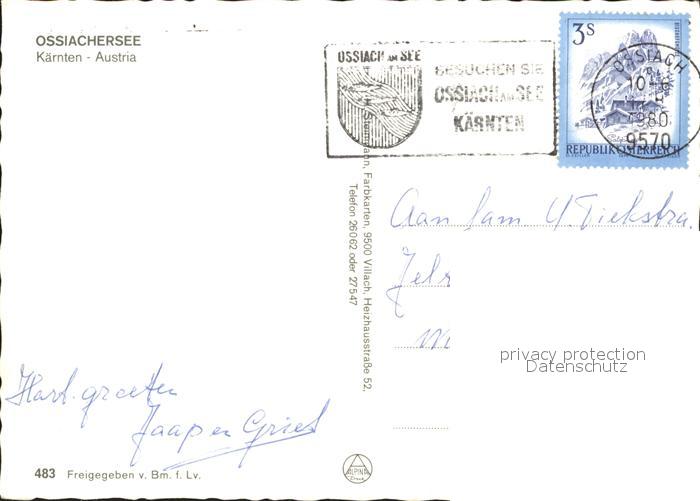 OSSIACHERSEE
Kärnten - Austria
OSSIACH AM SEE
BESUCHEN SIE
OSSIACH AM SEE
KÄRNTEN
3 S
REPUBLIK ÖSTERREICH
OSSIACH
1980
9570
Farbkarten, 9500 Villach, Heizhausstraße 52,
Telefon 26062 oder 27547
Aan fam
Hart. groeten
Jaap en
privacy protection
Datenschutz
483 Freigegeben v. Bm. f. Lv.
ALPINA
Druck